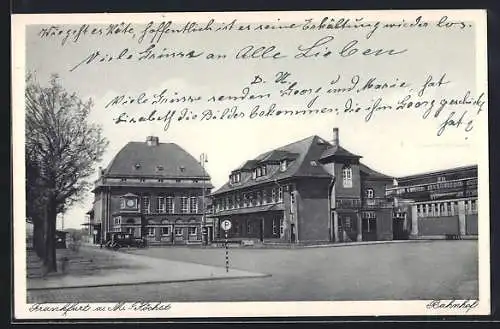 Wie geht es Käte, hoffentlich ist er seine Erkältung wieder los.
Viele Grüsse an Alle Lieben
D. U.
Viele Grüsse senden Goose und Marie, hat
Elisabeth die Bilder bekommen, die ihr Georg geschickt
hat?
P
Frankfurt a. M.-Höchst
Bahnhof